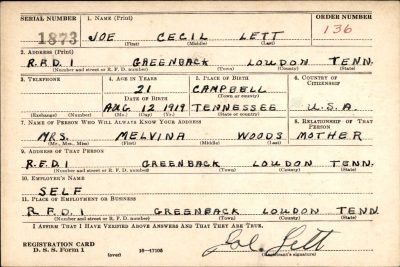 SERIAL NUMBER 1. NAME (Print) ORDER NUMBER
1873 JOE CECIL LETT 136
(First) (Middle) (Last)
2. ADDRESS (Print)
R.F.D. 1 GREENBACK LOUDON TENN.
(Number and street or R. F. D. number) (Town) (County) (State)
3. TELEPHONE 4. AGE IN YEARS 5. PLACE OF BIRTH 6. COUNTRY OF CITIZENSHIP
21 CAMPBELL
DATE OF BIRTH (Town or county)
AUG 12 1919 TENNESSEE U.S.A.
(Exchange) (Number) (Mo.) (Day) (Yr.) (State or country)
7. NAME OF PERSON WHO WILL ALWAYS KNOW YOUR ADDRESS 8. RELATIONSHIP OF THAT PERSON
MRS. MELVINA WOODS MOTHER
(Mr., Mrs., Miss) (First) (Middle) (Last)
9. ADDRESS OF THAT PERSON
R.F.D. 1 GREENBACK LOUDON TENN.
(Number and street or R. F. D. number) (Town) (County) (State)
10. EMPLOYER'S NAME
SELF
11. PLACE OF EMPLOYMENT OR BUSINESS
R.F.D. 1 GREENBACK LOUDON TENN.
(Number and street or R. F. D. number) (Town) (County) (State)
I AFFIRM THAT I HAVE VERIFIED ABOVE ANSWERS AND THAT THEY ARE TRUE.
REGISTRATION CARD
D. S. S. Form 1 (over) 16—17105 Lett
(Registrant's signature)